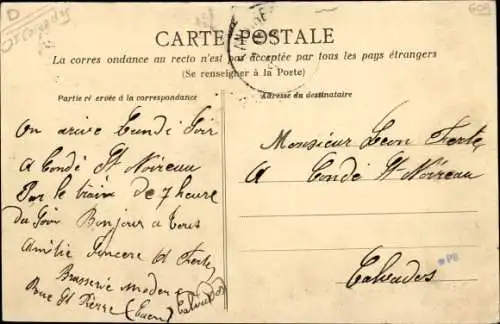 D
CARTE POSTALE
La corres ondance au recto n'est pas acceptée par tous les pays étrangers
(Se renseigner à la Poste)
Partie ré ervée à la correspondance
Adresse du destinataire
On arive Lundi Soir
A Condé St Noireau
Par le train de 7 heure
du Soir Bonjour a tous
Amitié Sincere A Ferte
Brasserie moderne
Rue St Pierre (Caen) Calvados
Monsieur Leon Ferte
A Condé St Noireau
Calvados